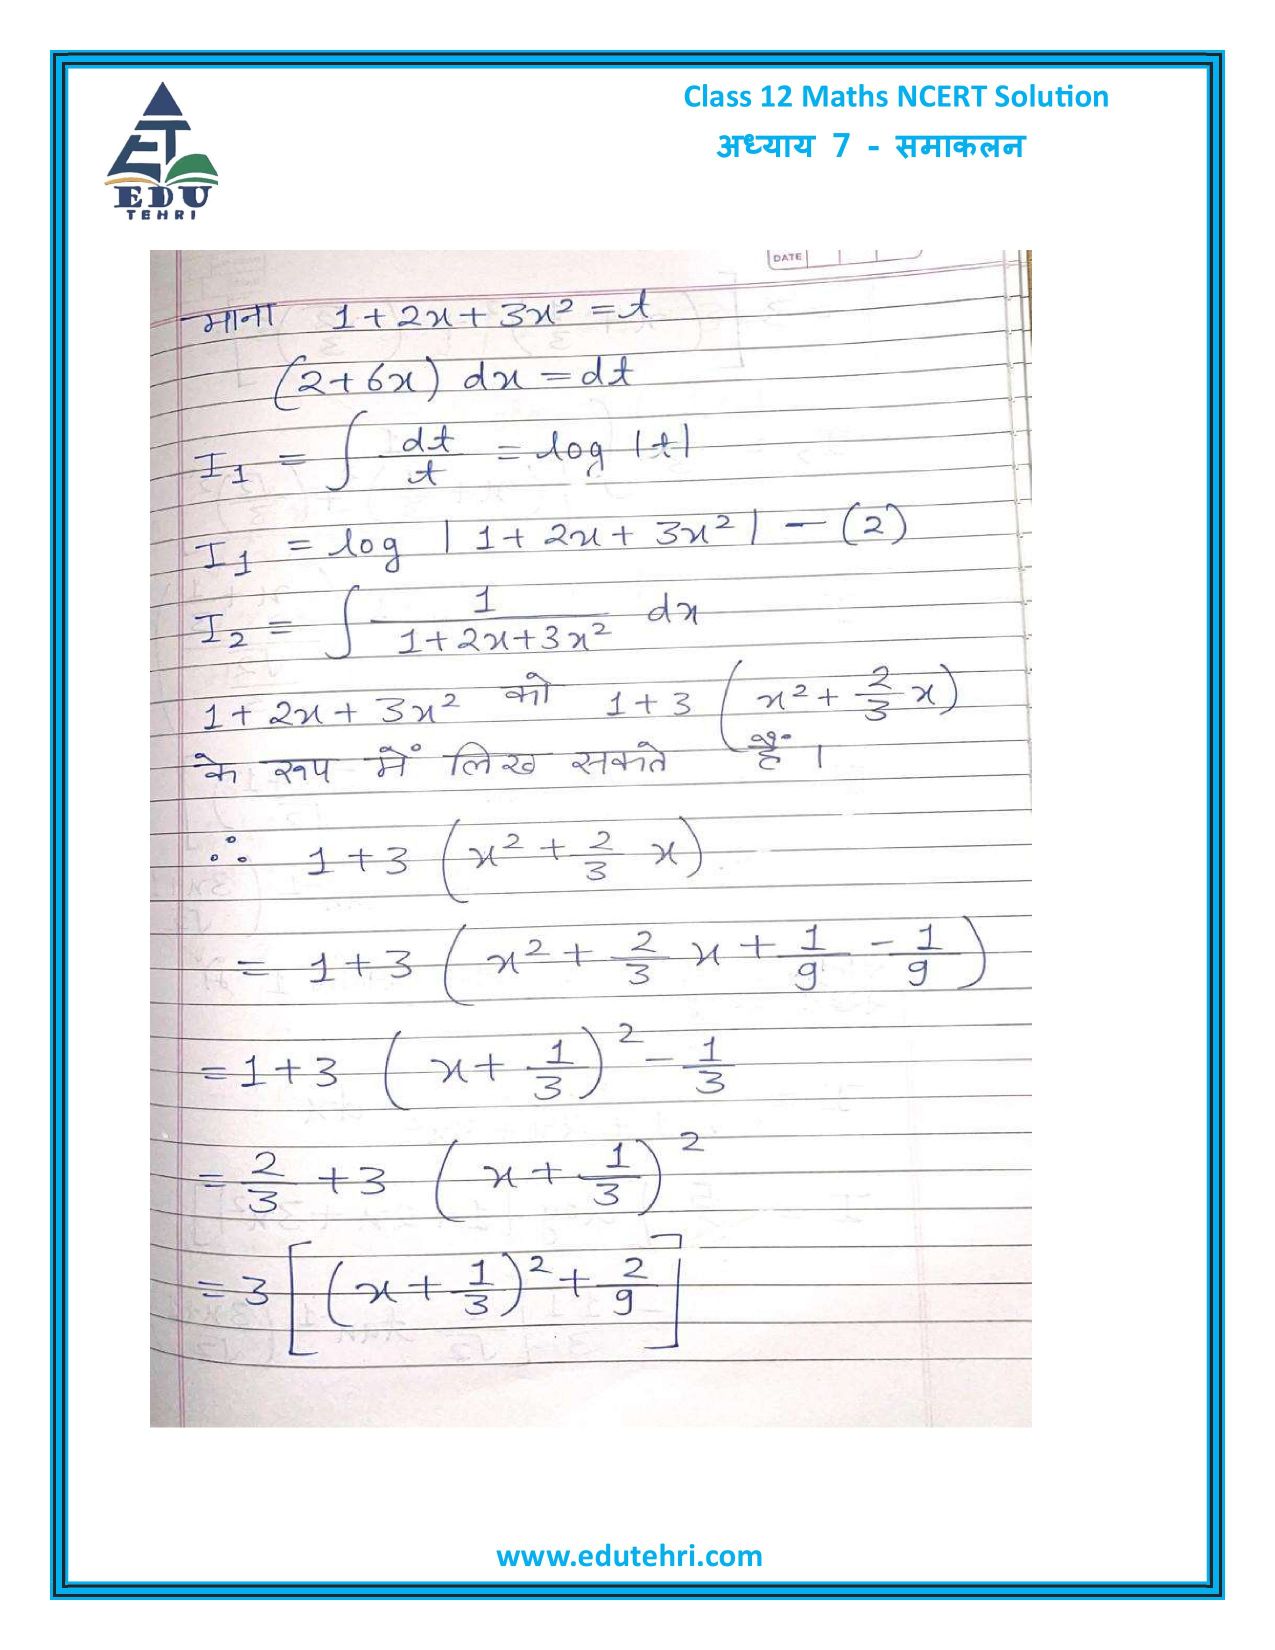 Class 12 Maths NCERT Solution
अध्याय 7 - समाकलन
EDU
TEHRI
DATE
माना 1+2x+3x² = t
(2+6x) dx = dt
I₁ = ∫ dt/t = log |t|
I₁ = log |1+2x+3x²| — (2)
I₂ = ∫ 1/(1+2x+3x²) dx
1+2x+3x² को 1+3 (x² + 2/3 x)
के रूप में लिख सकते हैं ।
∴ 1+3 (x² + 2/3 x)
= 1+3 (x² + 2/3 x + 1/9 - 1/9)
= 1+3 (x + 1/3)² - 1/3
= 2/3 + 3 (x + 1/3)²
= 3 [(x + 1/3)² + 2/9]
www.edutehri.com